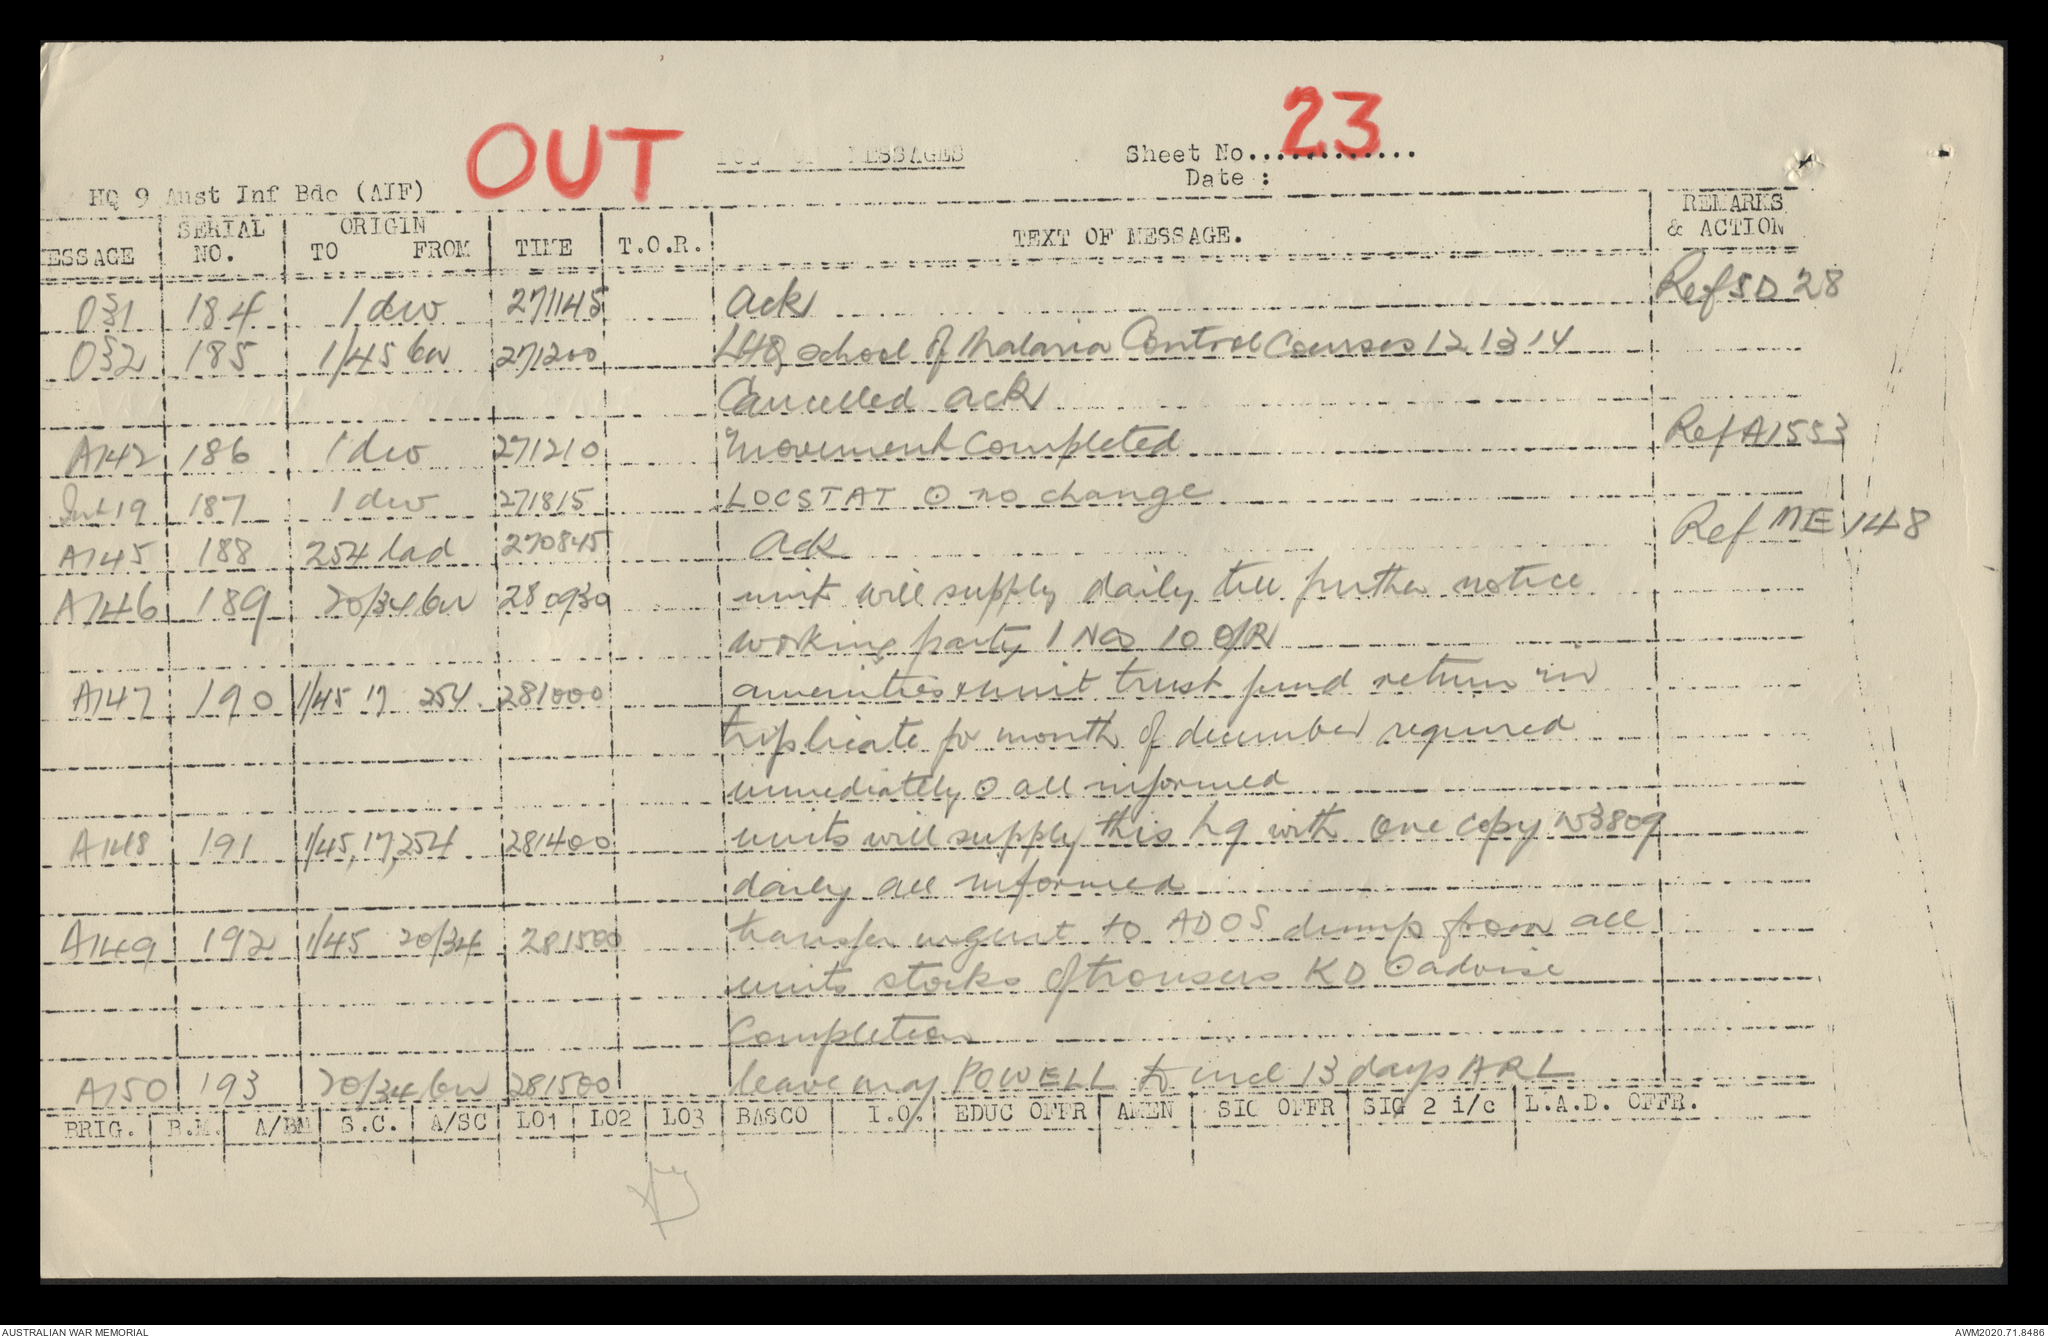 OUT
LOG OF MESSAGES
Sheet No............ 23
Date :
HQ 9 Aust Inf Bde (AIF)
ESSAGE SERIAL NO. ORIGIN TO FROM TIME T.O.R. TEXT OF MESSAGE. REMARKS & ACTION
O31 184 1 div 271145 ack Ref SD 28
O32 185 1/45 bn 271200 LHQ school of Malaria Control Courses 12 13 14
Cancelled ack
A142 186 1 div 271210 Movement completed Ref A1553
Int 19 187 1 div 271815 LOCSTAT ⊙ no change
A145 188 254 lad 270845 ack Ref ME 148
A146 189 20/34 bn 280930 unit will supply daily till further notice
working party 1 Nco 10 O/R
A147 190 1/45 17 254 281000 amenities & unit trust fund return in
triplicate for month of december required
immediately ⊙ all informed
A148 191 1/45, 17, 254 281400 units will supply this hq with one copy W3809
daily all informed
A149 192 1/45 20/34 281500 transfer urgent to ADOS dump from all
units stocks of trousers KD ⊙ advise
Completion
A150 193 20/34 bn 281500 leave maj POWELL to incl 13 days ARL
BRIG. B.M. A/BM S.C. A/SC LO1 LO2 LO3 BASCO I.O. EDUC OFFR AMEN SIG OFFR SIG 2 i/c L.A.D. OFFR.
AUSTRALIAN WAR MEMORIAL
AWM2020.71.8486